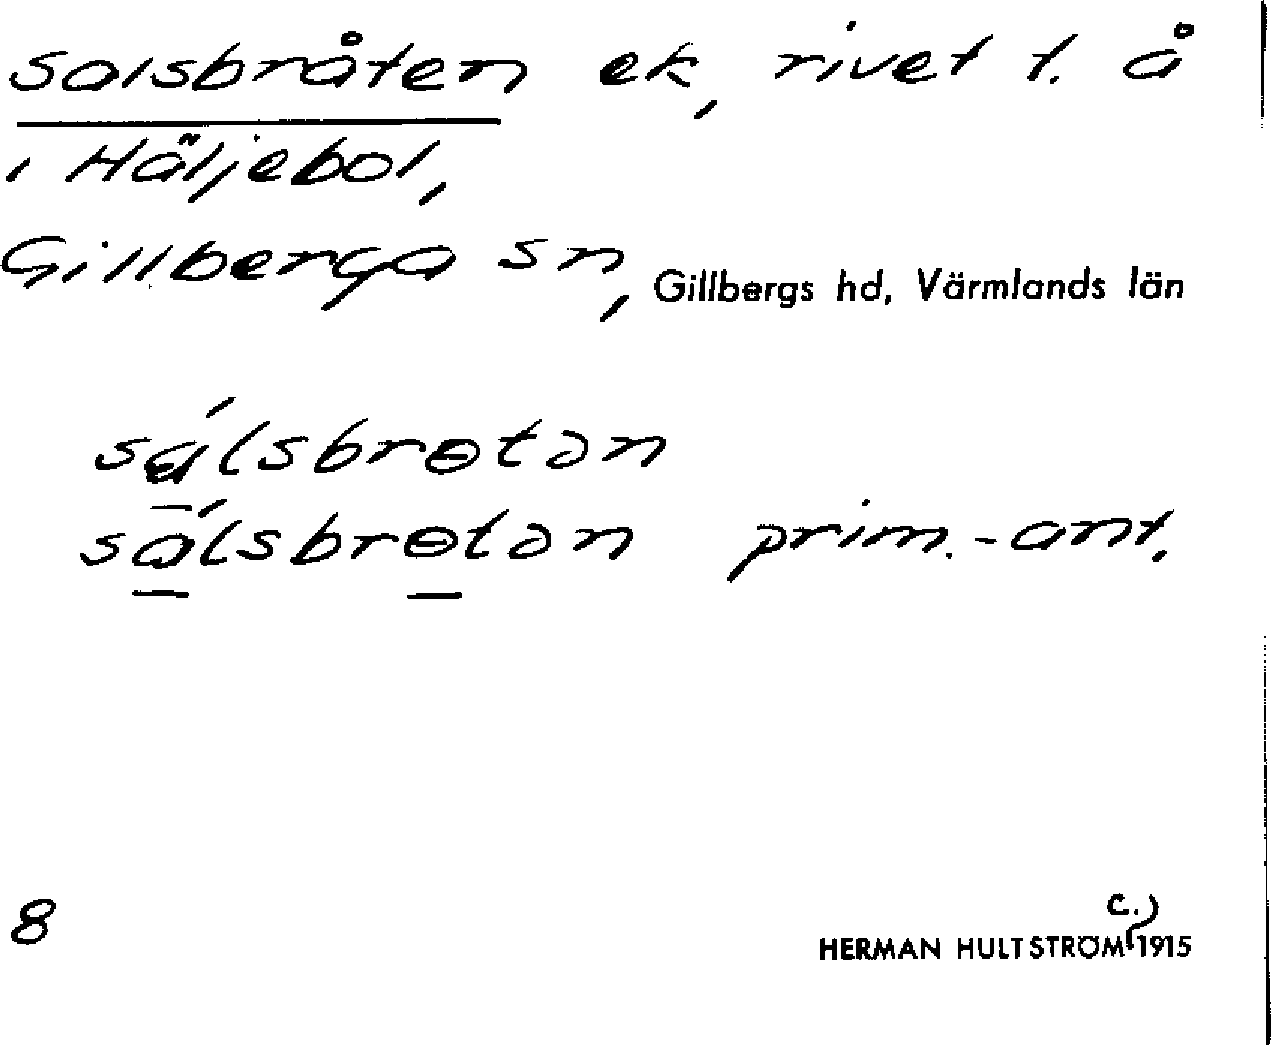 Salsbråten ek, rivet t. å
i Häljebol,
Gillberga sn, Gillbergs hd, Värmlands län
sálsbrɵtən
sálsbrɵtən prim.-ant.
8
c.)
HERMAN HULTSTRÖM 1915